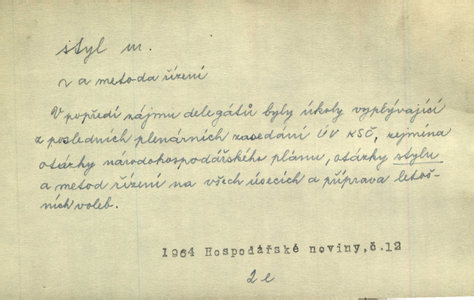 styl m.
~ a metoda řízení
V popředí zájmu delegátů byly úkoly vyplývající
z posledních plenárních zasedání ÚV KSČ, zejména
otázky národohospodářského plánu, otázky stylu
a metod řízení na všech úsecích a příprava letoš-
ních voleb.
1964 Hospodářské noviny,č.12
2 e